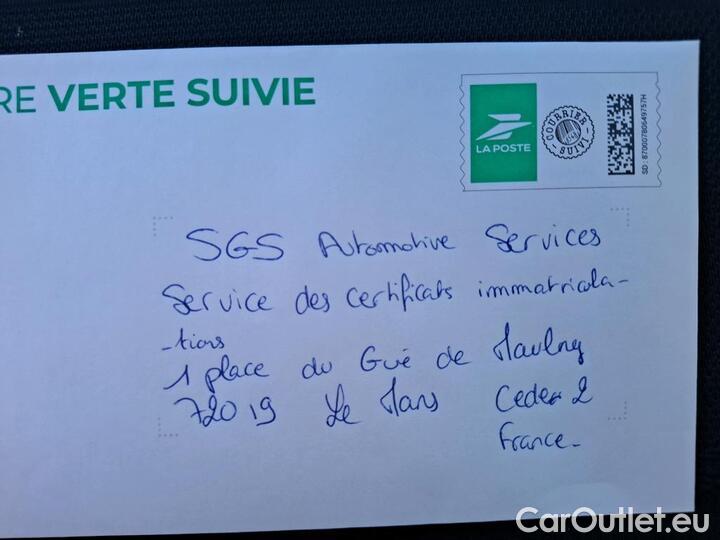 RE VERTE SUIVIE
LA POSTE
COURRIER SUIVI
SD : 87000780649757H
SGS Automotive Services
Service des certificats immatricula-
-tions
1 place du Gué de Maulny
72019 Le Mans Cedex 2
France.
CarOutlet.eu